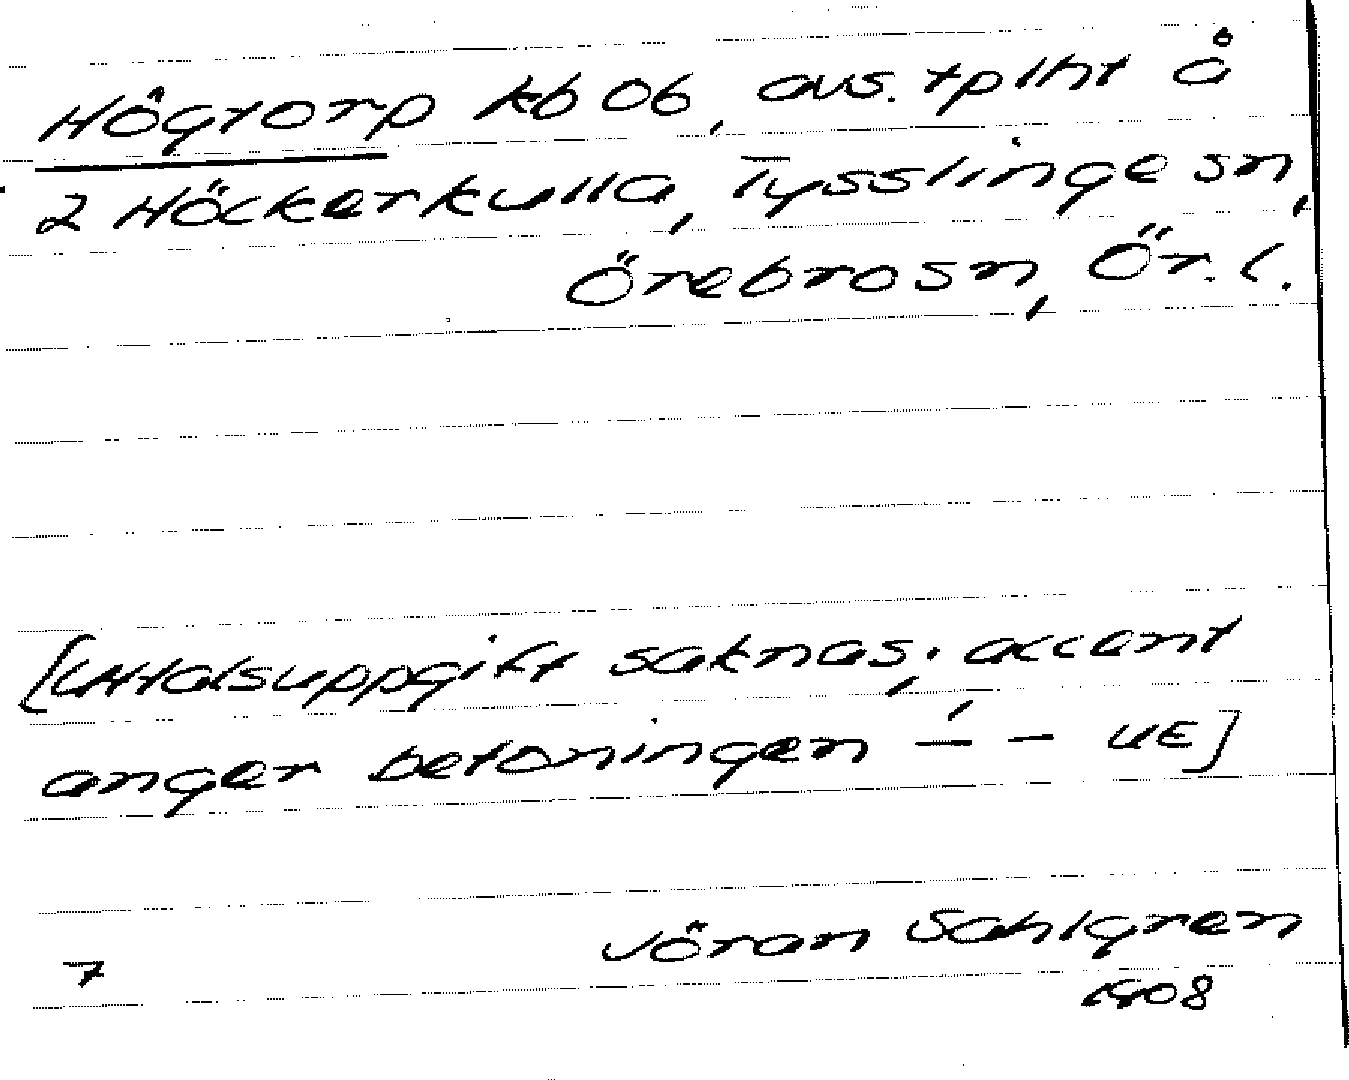 Högtorp kb 06, avs. tplht å
2 Höckerkulla, Tysslinge sn,
Örebro sn, Ör. l.
[Uttalsuppgift saknas; accent
anger betoningen –́ – UE]
Jöran Sahlgren
7
1908